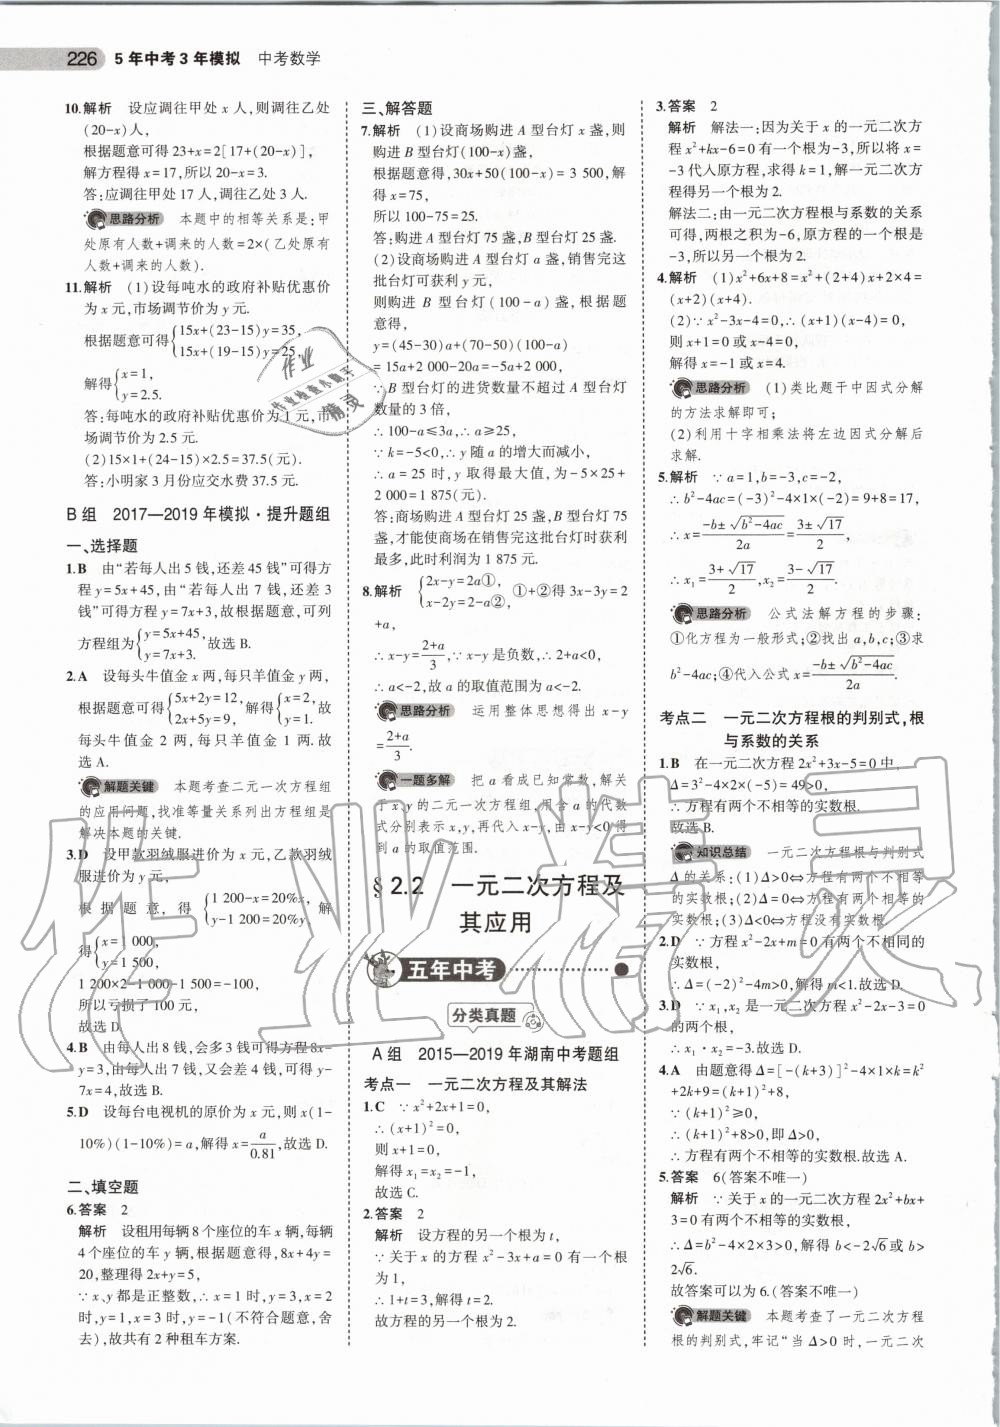 226 5年中考3年模拟 中考数学
10.解析 设应调往甲处 x 人,则调往乙处
(20-x)人,
根据题意可得 23+x=2[17+(20-x)],
解方程得 x=17,所以 20-x=3.
答:应调往甲处 17 人,调往乙处 3 人.
思路分析 本题中的相等关系是:甲
处原有人数+调来的人数=2×(乙处原有
人数+调来的人数).
11.解析 (1)设每吨水的政府补贴优惠价
为 x 元,市场调节价为 y 元.
根据题意可得{15x+(23-15)y=35,
15x+(19-15)y=25,
解得{x=1,
y=2.5.
答:每吨水的政府补贴优惠价为 1 元,市
场调节价为 2.5 元.
(2)15×1+(24-15)×2.5=37.5(元).
答:小明家 3 月份应交水费 37.5 元.
B组 2017—2019 年模拟·提升题组
一、选择题
1.B 由“若每人出 5 钱,还差 45 钱”可得方
程 y=5x+45,由“若每人出 7 钱,还差 3
钱”可得方程 y=7x+3,故根据题意,可列
方程组为{y=5x+45,
y=7x+3.故选 B.
2.A 设每头牛值金 x 两,每只羊值金 y 两,
根据题意可得{5x+2y=12,
2x+5y=9,解得{x=2,
y=1.故
每头牛值金 2 两,每只羊值金 1 两.故
选 A.
解题关键 本题考查二元一次方程组
的应用问题,找准等量关系列出方程组是
解决本题的关键.
3.D 设甲款羽绒服进价为 x 元,乙款羽绒
服进价为 y 元,
根据题意,得{1 200-x=20%x,
y-1 200=20%y,解
得{x=1 000,
y=1 500,
1 200×2-1 000-1 500=-100,
所以亏损了 100 元,
故选 D.
4.B 由每人出 8 钱,会多 3 钱可得方程 8x-
y=3,由每人出 7 钱,又差 4 钱可得方程 y-
7x=4,故选 B.
5.D 设每台电视机的原价为 x 元,则 x(1-
10%)(1-10%)=a,解得 x=a/0.81,故选 D.
二、填空题
6.答案 2
解析 设租用每辆 8 个座位的车 x 辆,每辆
4 个座位的车 y 辆,根据题意得,8x+4y=
20,整理得 2x+y=5,
∵x,y 都是正整数,∴x=1 时,y=3,x=2
时,y=1,x=3 时,y=-1(不符合题意,舍
去),故共有 2 种租车方案.
三、解答题
7.解析 (1)设商场购进 A 型台灯 x 盏,则
购进 B 型台灯(100-x)盏,
根据题意得,30x+50(100-x)=3 500,解
得 x=75,
所以 100-75=25.
答:购进 A 型台灯 75 盏,B 型台灯 25 盏.
(2)设商场购进 A 型台灯 a 盏,销售完这
批台灯可获利 y 元,
则购进 B 型台灯(100-a)盏,根据题
意得,
y=(45-30)a+(70-50)(100-a)
=15a+2 000-20a=-5a+2 000,
∵B 型台灯的进货数量不超过 A 型台灯
数量的 3 倍,
∴100-a≤3a,∴a≥25,
∵k=-5<0,∴y 随 a 的增大而减小,
∴a=25 时,y 取得最大值,为-5×25+
2 000=1 875(元).
答:商场购进 A 型台灯 25 盏,B 型台灯 75
盏,才能使商场在销售完这批台灯时获利
最多,此时利润为 1 875 元.
8.解析 {2x-y=2a①,
x-2y=2-a②,①+②得 3x-3y=2
+a,
∴x-y=(2+a)/3,∵x-y 是负数,∴2+a<0,
∴a<-2,故 a 的取值范围为 a<-2.
思路分析 运用整体思想得出 x-y
=(2+a)/3.
一题多解 把 a 看成已知常数,解关
于 x,y 的二元一次方程组,用含 a 的代数
式分别表示 x,y,再代入 x-y,由 x-y<0 得
到 a 的取值范围.
§2.2 一元二次方程及
其应用
五年中考
分类真题
A组 2015—2019 年湖南中考题组
考点一 一元二次方程及其解法
1.C ∵x²+2x+1=0,
∴(x+1)²=0,
则 x+1=0,
解得 x₁=x₂=-1,
故选 C.
2.答案 2
解析 设方程的另一个根为 t,
∵关于 x 的方程 x²-3x+a=0 有一个根
为 1,
∴1+t=3,解得 t=2.
故方程的另一个根为 2.
3.答案 2
解析 解法一:因为关于 x 的一元二次方
程 x²+kx-6=0 有一个根为-3,所以将 x=
-3 代入原方程,求得 k=1,解一元二次方
程得另一个根为 2.
解法二:由一元二次方程根与系数的关系
可得,两根之积为-6,原方程的一个根是
-3,所以另一个根为 2.
4.解析 (1)x²+6x+8=x²+(2+4)x+2×4=
(x+2)(x+4).
(2)∵x²-3x-4=0,∴(x+1)(x-4)=0,
则 x+1=0 或 x-4=0,
解得 x=-1 或 x=4.
思路分析 (1)类比题干中因式分解
的方法求解即可;
(2)利用十字相乘法将左边因式分解后
求解.
5.解析 ∵a=1,b=-3,c=-2,
∴b²-4ac=(-3)²-4×1×(-2)=9+8=17,
∴x=(-b±√(b²-4ac))/2a=(3±√17)/2,
∴x₁=(3+√17)/2,x₂=(3-√17)/2.
思路分析 公式法解方程的步骤:
①化方程为一般形式;②找出 a,b,c;③求
b²-4ac;④代入公式 x=(-b±√(b²-4ac))/2a.
考点二 一元二次方程根的判别式,根
与系数的关系
1.B 在一元二次方程 2x²+3x-5=0 中,
Δ=3²-4×2×(-5)=49>0,
∴方程有两个不相等的实数根.
故选 B.
知识总结 一元二次方程根与判别式
Δ 的关系:(1)Δ>0⇔方程有两个不相等
的实数根;(2)Δ=0⇔方程有两个相等的
实数根;(3)Δ<0⇔方程没有实数根.
2.D ∵方程 x²-2x+m=0 有两个不相同的
实数根,
∴Δ=(-2)²-4m>0,解得 m<1.故选 D.
3.D ∵x₁,x₂ 是一元二次方程 x²-2x-3=0
的两个根,
∴x₁·x₂=-3.故选 D.
4.A 由题意得 Δ=[-(k+3)]²-4×1×k=k²
+2k+9=(k+1)²+8,
∵(k+1)²≥0,
∴(k+1)²+8>0,即 Δ>0,
∴方程有两个不相等的实数根.故选 A.
5.答案 6(答案不唯一)
解析 ∵关于 x 的一元二次方程 2x²+bx+
3=0 有两个不相等的实数根,
∴Δ=b²-4×2×3>0,解得 b<-2√6或 b>
2√6.
故答案可以为 6.(答案不唯一)
解题关键 本题考查了一元二次方程
根的判别式,牢记“当 Δ>0 时,一元二次
作业精灵
作业
作业检查小助手
精灵